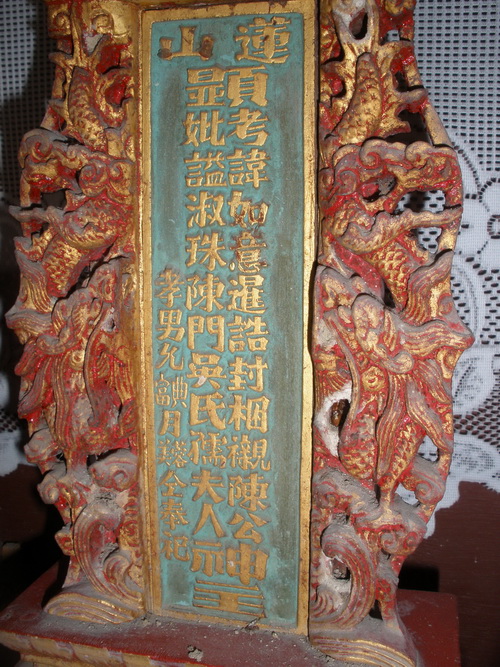 蓮山
顯考諱如意暹誥封梱襯陳公神
顯妣謚淑珠陳門吳氏孺夫人神
主
孝男允典富月全奉祀